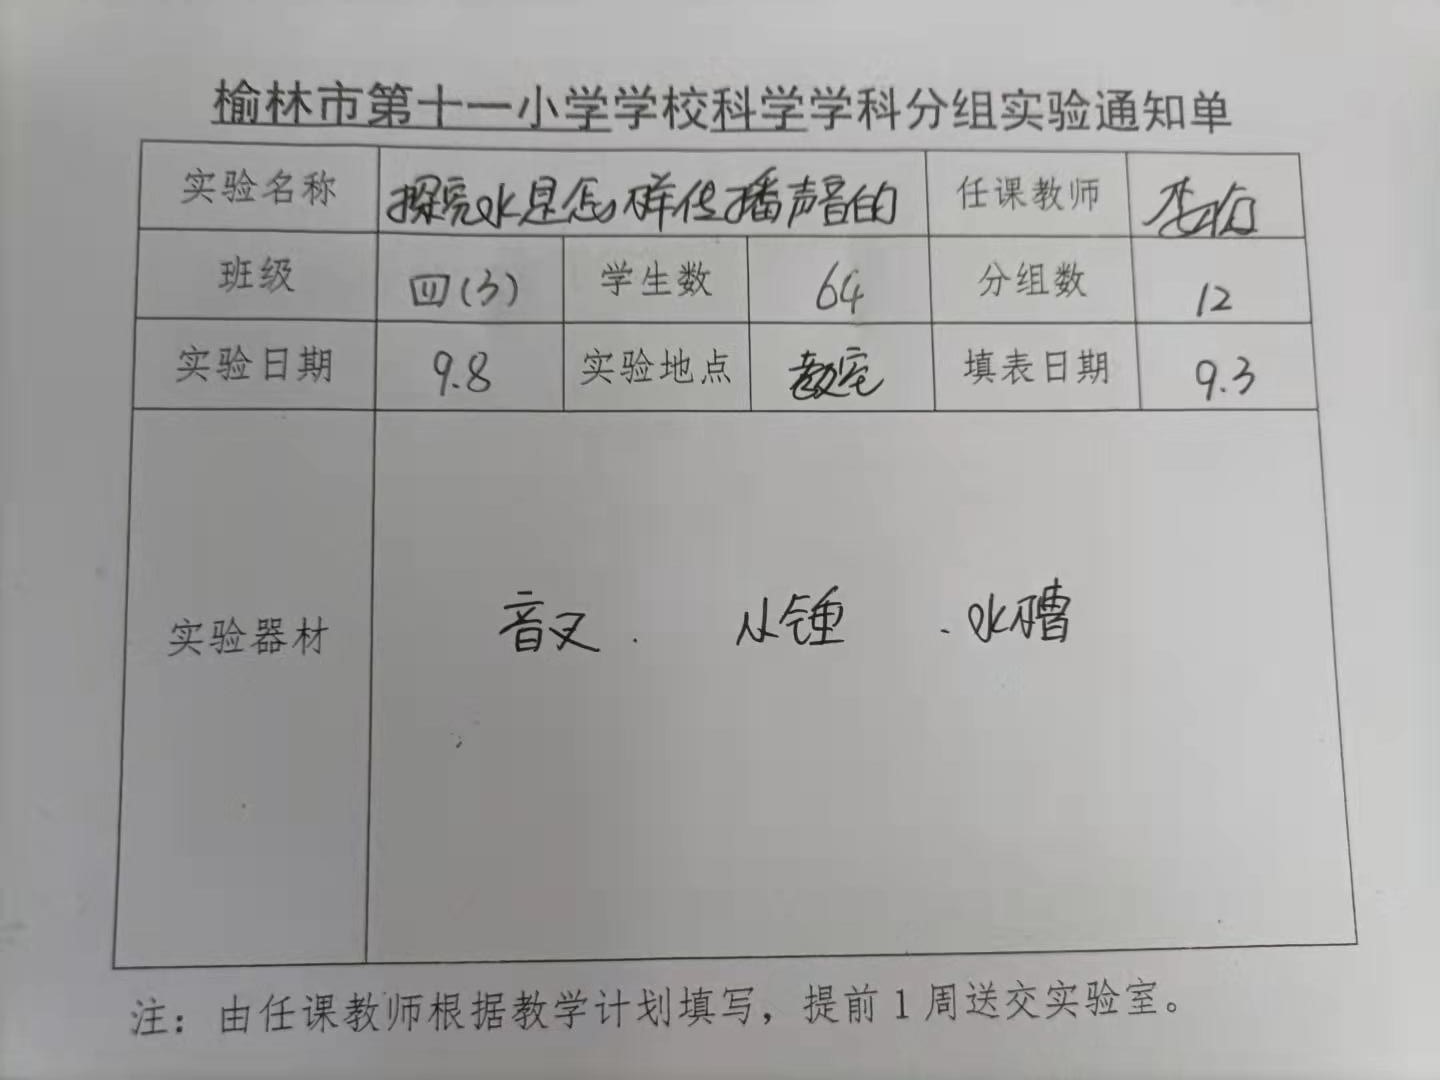 榆林市第十一小学学校科学学科分组实验通知单
实验名称 探究水是怎样传播声音的 任课教师
班级 四(3) 学生数 64 分组数 12
实验日期 9.8 实验地点 教室 填表日期 9.3
实验器材 音叉. 小锤 、水槽
注：由任课教师根据教学计划填写，提前1周送交实验室。